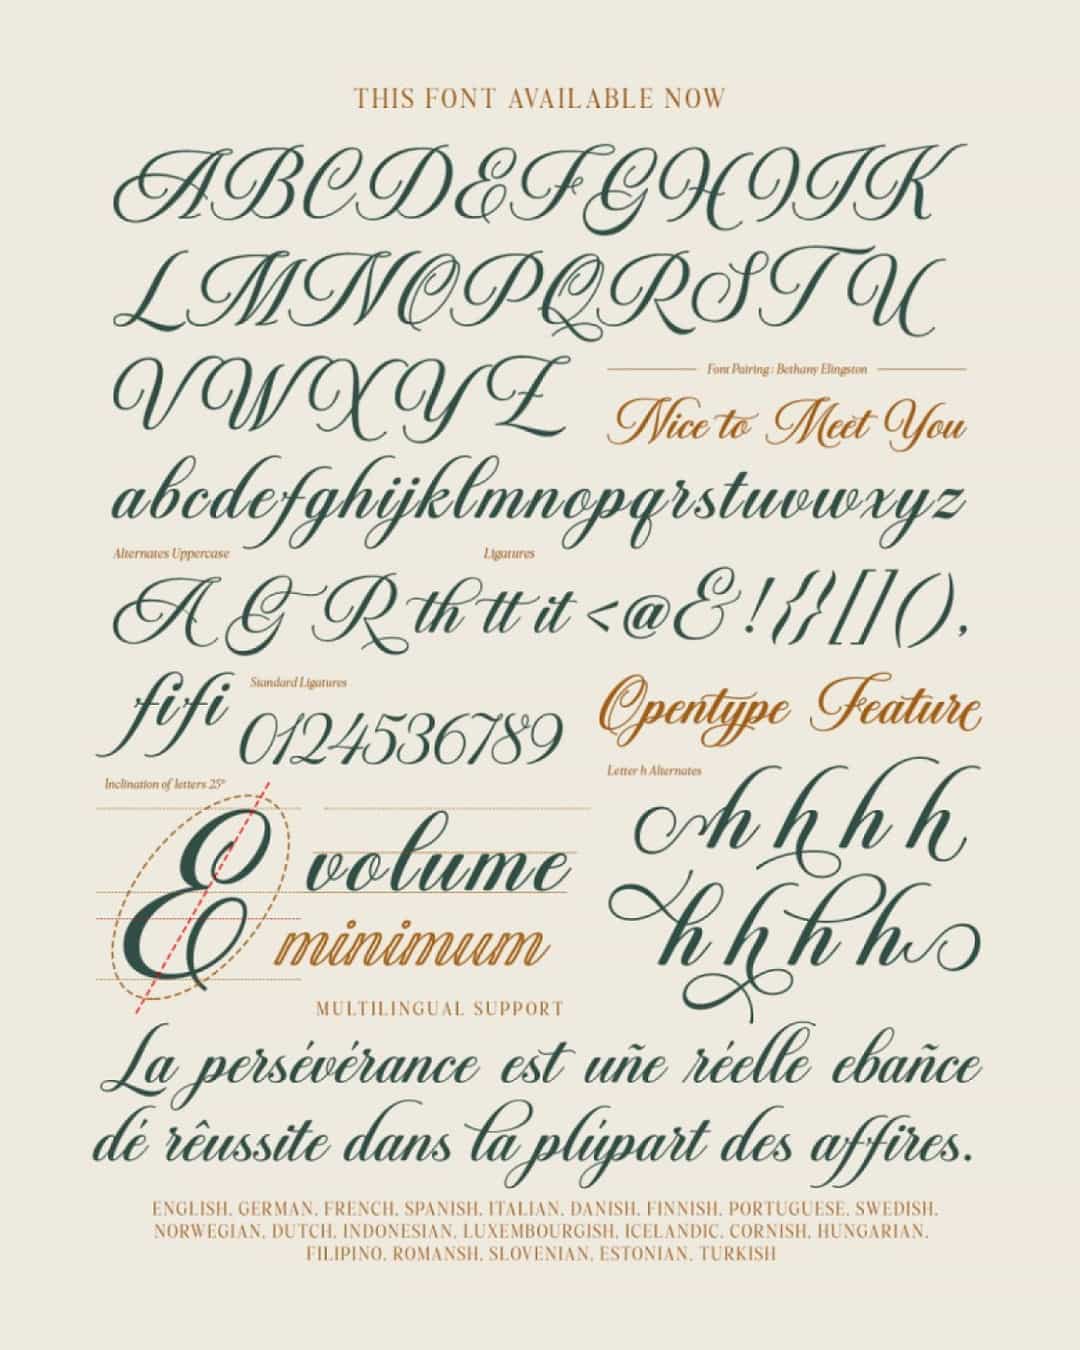 THIS FONT AVAILABLE NOW
ABCDEFGHIJK
LMNOPQRSTU
VWXYZ
Font Pairing : Bethany Elingston
Nice to Meet You
abcdefghijklmnopqrstuvwxyz
Alternates Uppercase
Ligatures
A G R th tt it <@&!{}[](),
fifi
Standard Ligatures
0124536789
Opentype Feature
Inclination of letters 25°
Letter h Alternates
E
volume
minimum
h h h h
h h h h
MULTILINGUAL SUPPORT
La persévérance est uñe réelle ebañce
dé rêussite dans la plúpart des affires.
ENGLISH, GERMAN, FRENCH, SPANISH, ITALIAN, DANISH, FINNISH, PORTUGUESE, SWEDISH,
NORWEGIAN, DUTCH, INDONESIAN, LUXEMBOURGISH, ICELANDIC, CORNISH, HUNGARIAN,
FILIPINO, ROMANSH, SLOVENIAN, ESTONIAN, TURKISH